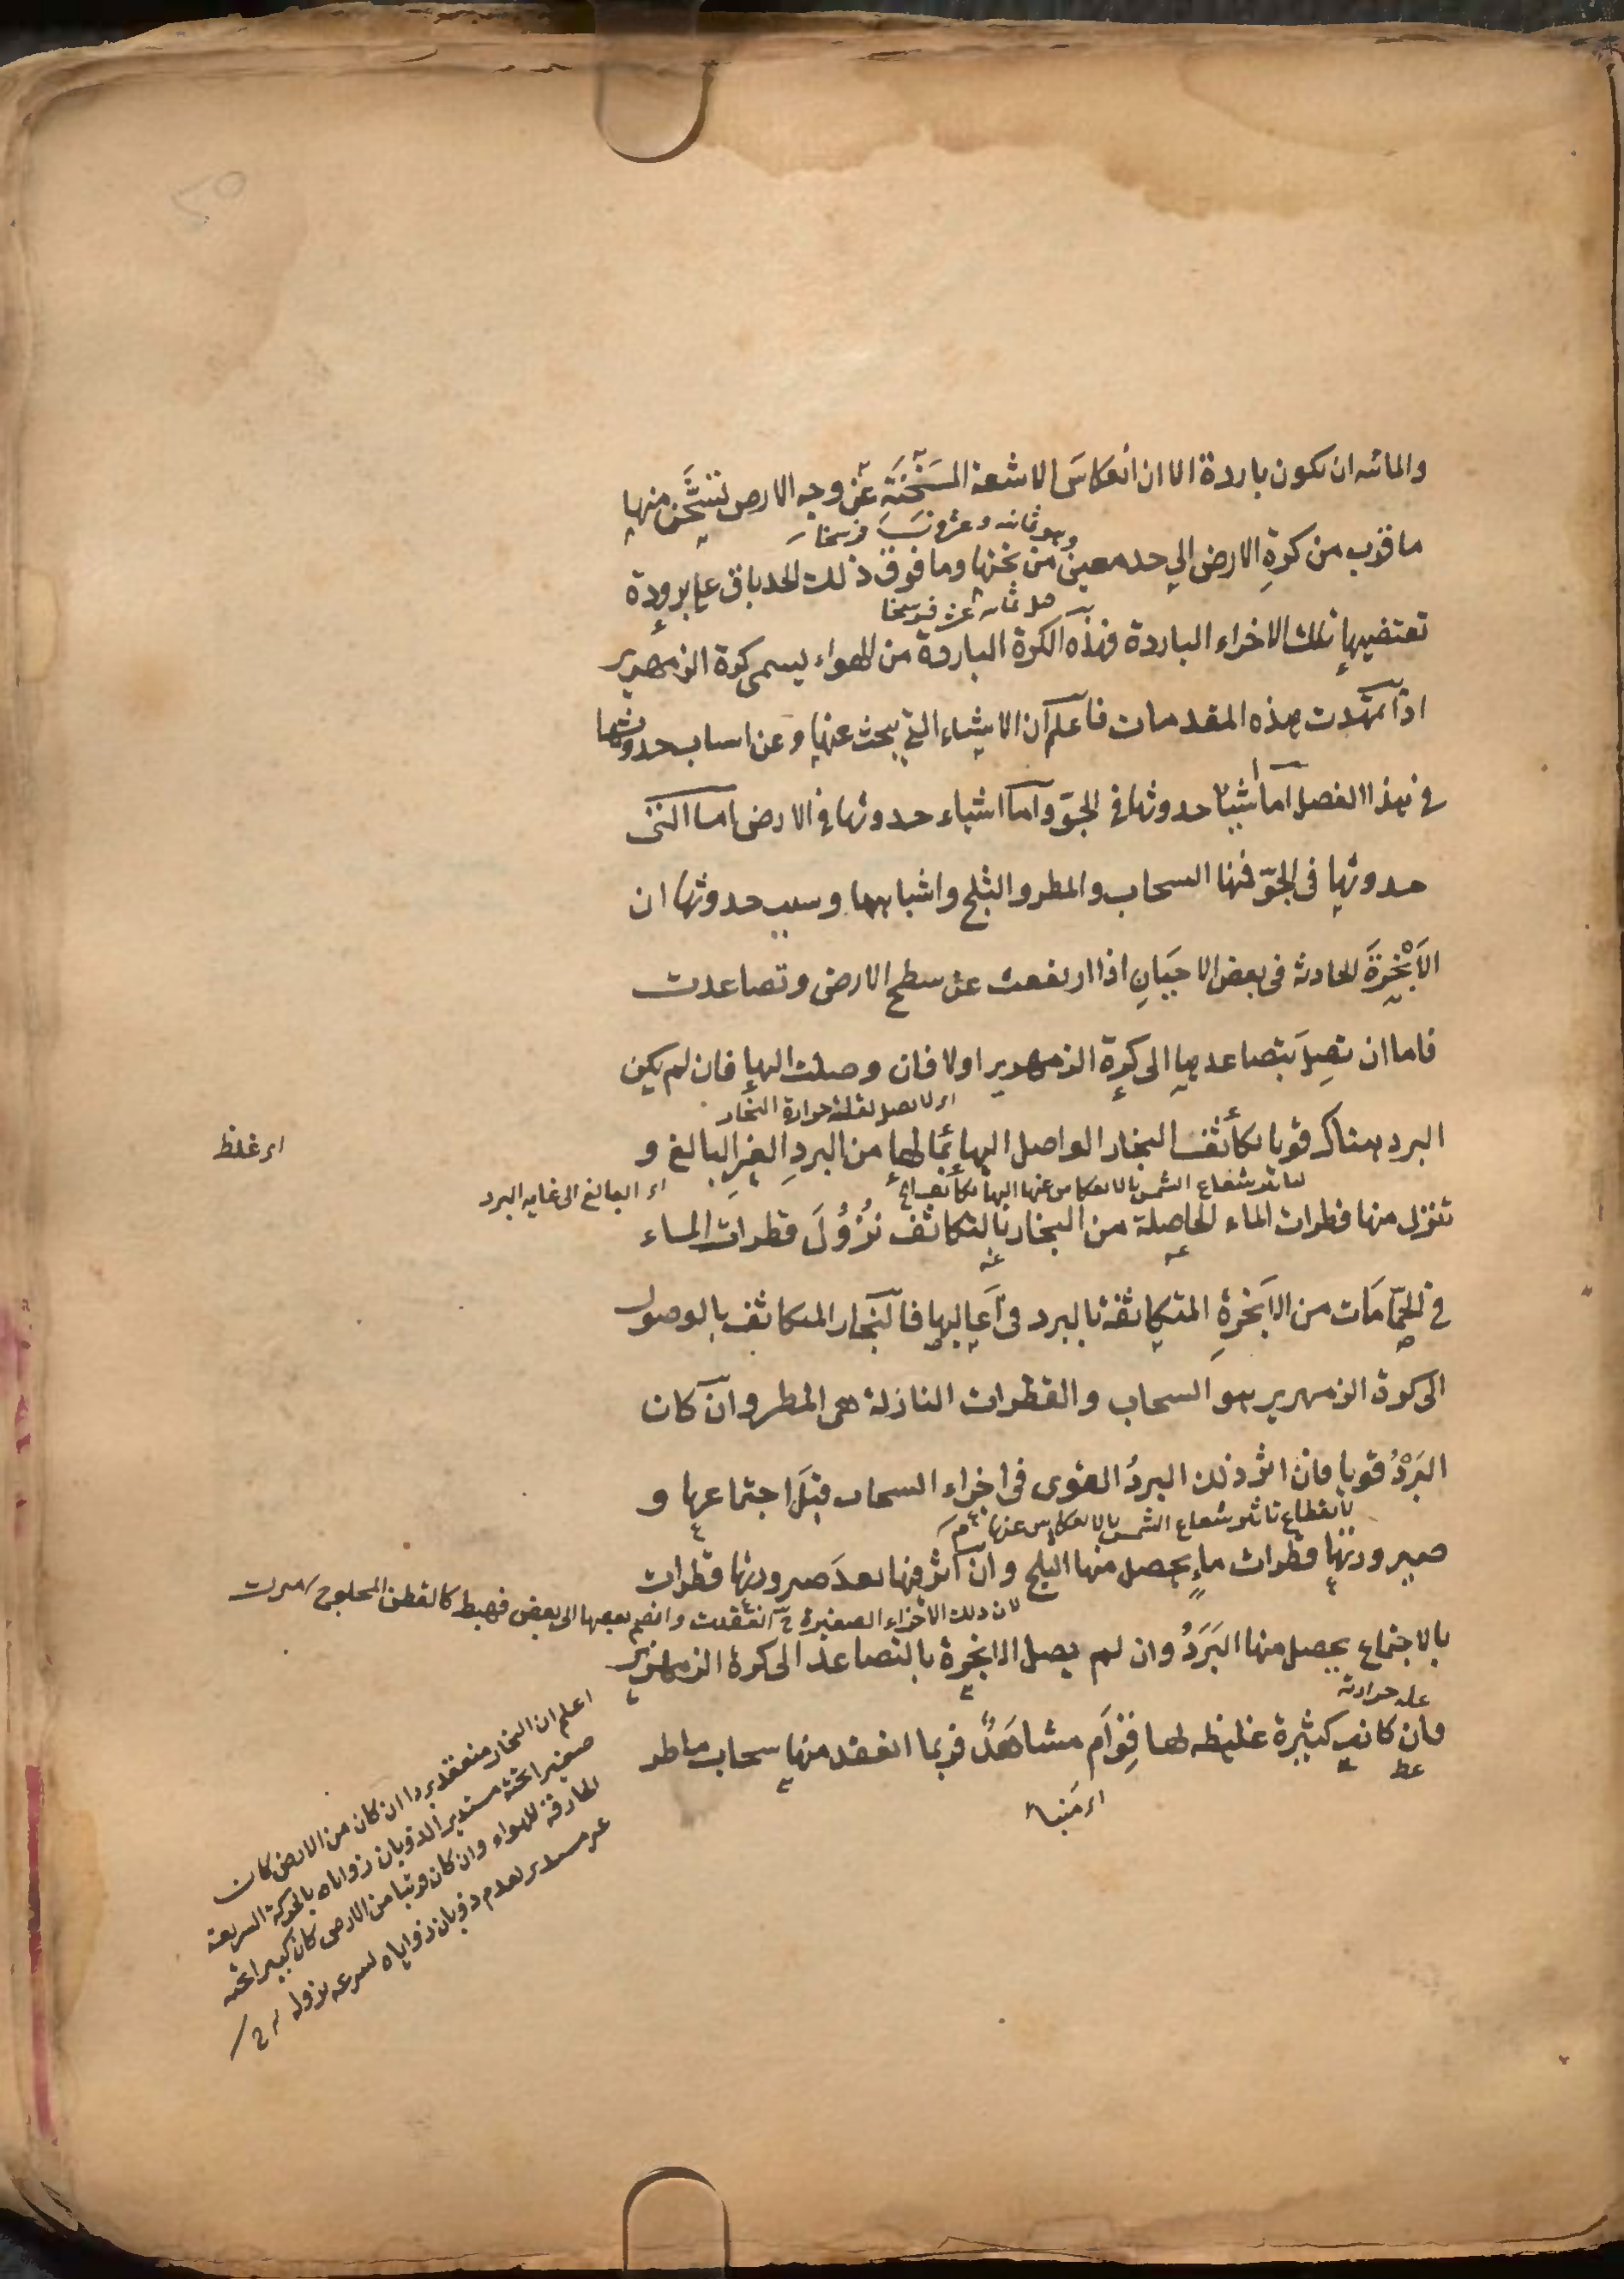 والمائه ان تكون باردة الا ان انعكاسَ الاشعة المسَخّنَةِ عَن وجه الارض تسَخَّن منها
وهو ثمانيه وعشرون فرسخا
ما قرب من كرةِ الارض الي حد معين من تخنها وما فوق ذلك الحد باق علي برودة
تقتضيها تلك الاجزاء الباردة فهذه الكرة الباردة من الهواء يسمى كرة الزمهرير
اذا تمهّدت هذه المقدمات فاعلم ان الاشياء التي يبحث عنها وعن اسباب حدوثها
في هذا الفصل اما اشيا حدوثها في الجوّ واما اشياء حدوثها في الارض اما التي
حدوثها في الجوّ فمنها السحاب والمطر والثلج واشباهها وسبب حدوثها ان
الاَبْخِرَةَ الحادثة في بعض الاحيَانِ اذا ارتفعت عن سطح الارض وتصاعدت
فاما ان تصِلَ بتصاعدها الى كرة الزمهرير اولا فان وصلت اليها فان لم يكن
لقلة حرارة البخار
البرد هناك قويا تكاثف البخار الواصل اليها بمَا لها من البردِ الغيرِ البالغ و
اى غلظ
شعاع الشمس بالانعكاس عنها اليها
اى البالغ الى غايه البرد
تنزل منها قطرات الماء الحاصلة من البخار بالتكاثف نُزُولَ قطرات الماء
في الحمّامَات من الاَبخرةِ المتكاثفة بالبرد في اَعاليها فالبُخار المتكاثف بالوصول
الى كرة الزمهرير هو السحاب والقطرات النازلة هى المطر وان كان
البَرْدُ قويا فان اثر ذلك البردُ القوى فى اجزاء السحاب قبلَ اجتماعها و
بانقطاع تاثير شعاع الشمس بالانعكاس عنها
صيرورتها قطرات ماءٍ يحصل منها الثلج وان اثر فيها بعدَ صيرورتها قطرات
لان ذلك الاجزاء الصغيرة ح انعقدت وانضم بعضها الى بعض فهبط كالقطن المحلوج
بالاجتماع يحصل منها البَرَدُ وان لم يصل الابخرة بالتصاعد الى كرة الزمهرير
حرارته
فان كانت كثيرة غليظه لها قِوَام مشاهَدٌ فربما انعقد منها سحاب ماطر
اعلم ان البخار منعقد بردا ان كان من الارض كان
صغير الجثة مستدير الذوبان زواياه بالحركة السريعة
الخارقة للهواء وان كان قريبا من الارض كان كبير الجثه
غير مستدير لعدم ذوبان زواياه لسرعه نزوله